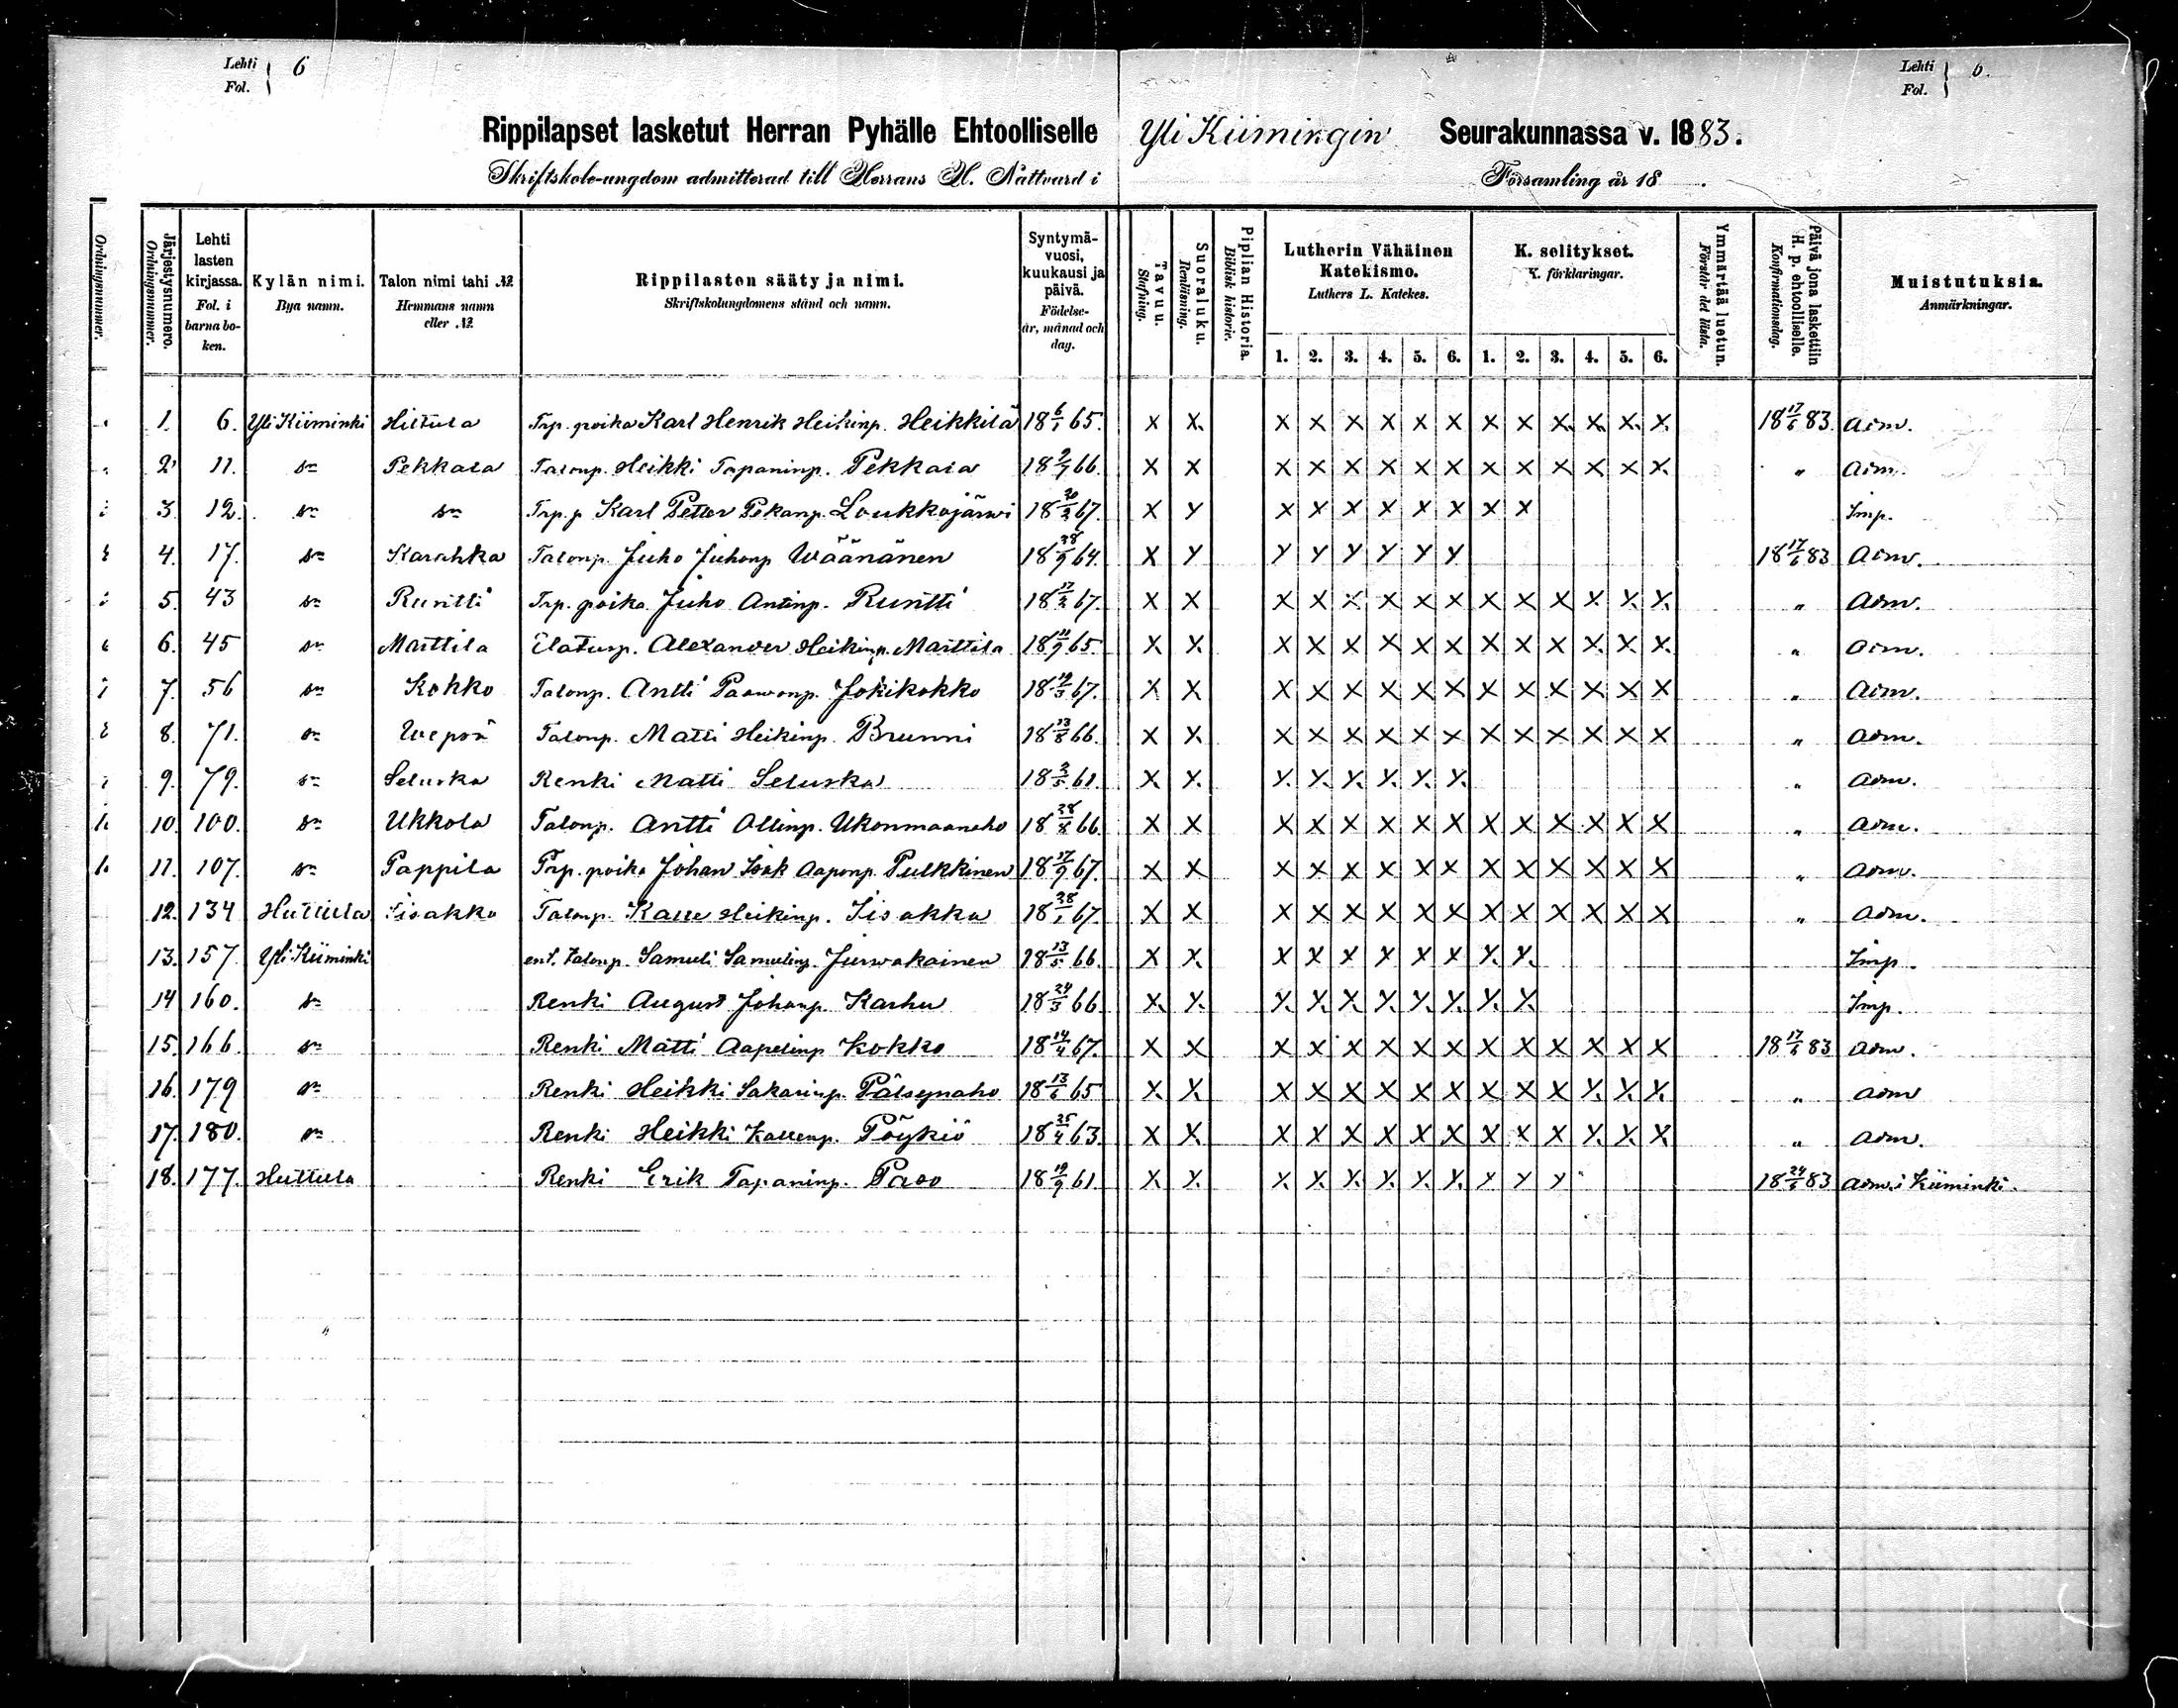 Lehti 6
Fol.
Lehti 6.
Fol.
Rippilapset lasketut Herran Pyhälle Ehtoolliselle Yli Kiimingin Seurakunnassa v. 1883.
Skriftskole-ungdom admitterad till Herrans H. Nattvard i Församling år 18 .
Ordningsnummer. Järjestysnumero. Ordningsnummer. Lehti lasten kirjassa. Fol. i barnaboken. Kylän nimi. Bya namn. Talon nimi tahi №. Hemmans namn eller №. Rippilasten sääty ja nimi. Skriftskolungdomens stånd och namn. Syntymävuosi, kuukausi ja päivä. Födelseår, månad och dag. Tavuu. Stafning. Suoraluku. Renläsning. Piplian Historia. Biblisk historie. Lutherin Vähäinen Katekismo. Luthers L. Katekes. 1. 2. 3. 4. 5. 6. K. selitykset. K. förklaringar. 1. 2. 3. 4. 5. 6. Ymmärtää luetun. Förstår det lästa. Päivä jona laskettiin H. p. ehtoolliselle. Konfirmationsdag. Muistutuksia. Anmärkningar.
1. 6. Yli Kiiminki Hiltula Trp. poika Karl Henrik Heikinp. Heikkilä 18 6/1 65. x x. x x x x x x x x x. x. x. x. 18 17/6 83. Adm.
2 11. dn Pekkala Talonp. Heikki Tapaninp. Pekkala 18 9/7 66. x x x x x x x x x x x x x x. " Adm.
3. 12. dn dn Trp. p Karl Petter Pekanp. Loukkojärwi 18 20/2 67. x x x x x x x x x x Imp.
4. 17. dn Karahka Talonp. Juho Juhonp Wäänänen 18 28/9 64. x x x x x x x x 18 17/6 83 Adm.
5. 43 dn Runtti Trp. poika Juho Antinp. Runtti 18 17/2 67. x x x x x x x x x x x x. x. x. " Adm.
6. 45 dn Marttila Elatusp. Alexander Heikinp. Marttila 18 11/9 65. x x. x x x x x x x x x x. x x. " Adm.
7. 56 dn Kokko Talonp. Antti Paawonp. Jokikokko 18 19/3 67. x x x x x x x x x x x x x x " Adm.
8. 71. dn Wepsä Talonp. Matti Heikinp. Brunni 18 13/8 66. x x. x x x x x x x x x x x x " Adm.
9. 79. dn Seluska Renki Matti Seluska 18 2/5 61. x x. x. x. x. x. x. x. " Adm.
10. 100. dn Ukkola Talonp. Antti Ollinp. Ukonmaanaho 18 28/8 66. x x x x x x x x x x x x x x " Adm.
11. 107. dn Pappila Trp. poika Johan Isak Aaponp. Pulkkinen 18 17/9 67. x x x x x x x x x x x x x x " Adm.
12. 134 Huttula Iisakka Talonp. Kalle Heikinp. Iisakka 18 28/1 67. x x x x x x x x x x x x x x " Adm.
13. 157. Yli Kiiminki ent. talonp. Samuli Samulinp. Juuwakainen 18 13/5 66. x x. x x x x x x x. x. Imp.
14 160. dn Renki August Johanp. Karhu 18 24/3 66. x. x. x. x. x. x. x. x. x. x. Imp.
15. 166. dn Renki Matti Aapelinp Kokko 18 14/4 67. x x x x x x x x x x x x x x 18 17/6 83 Adm.
16. 179 dn Renki Heikki Sakarinp. Pälsynaho 18 13/6 65 x. x. x x x x x x x x x x. x. x. " Adm
17. 180. dn Renki Heikki Kallenp. Pöykiö 18 25/4 63. x x. x x x x x x x x x x. x. x. " Adm.
18. 177. Huttula Renki Erik Tapaninp. Paso 18 19/9 61. x. x. x. x. x. x. x. x. x x x 18 24/6 83 Adm. i Kiiminki.